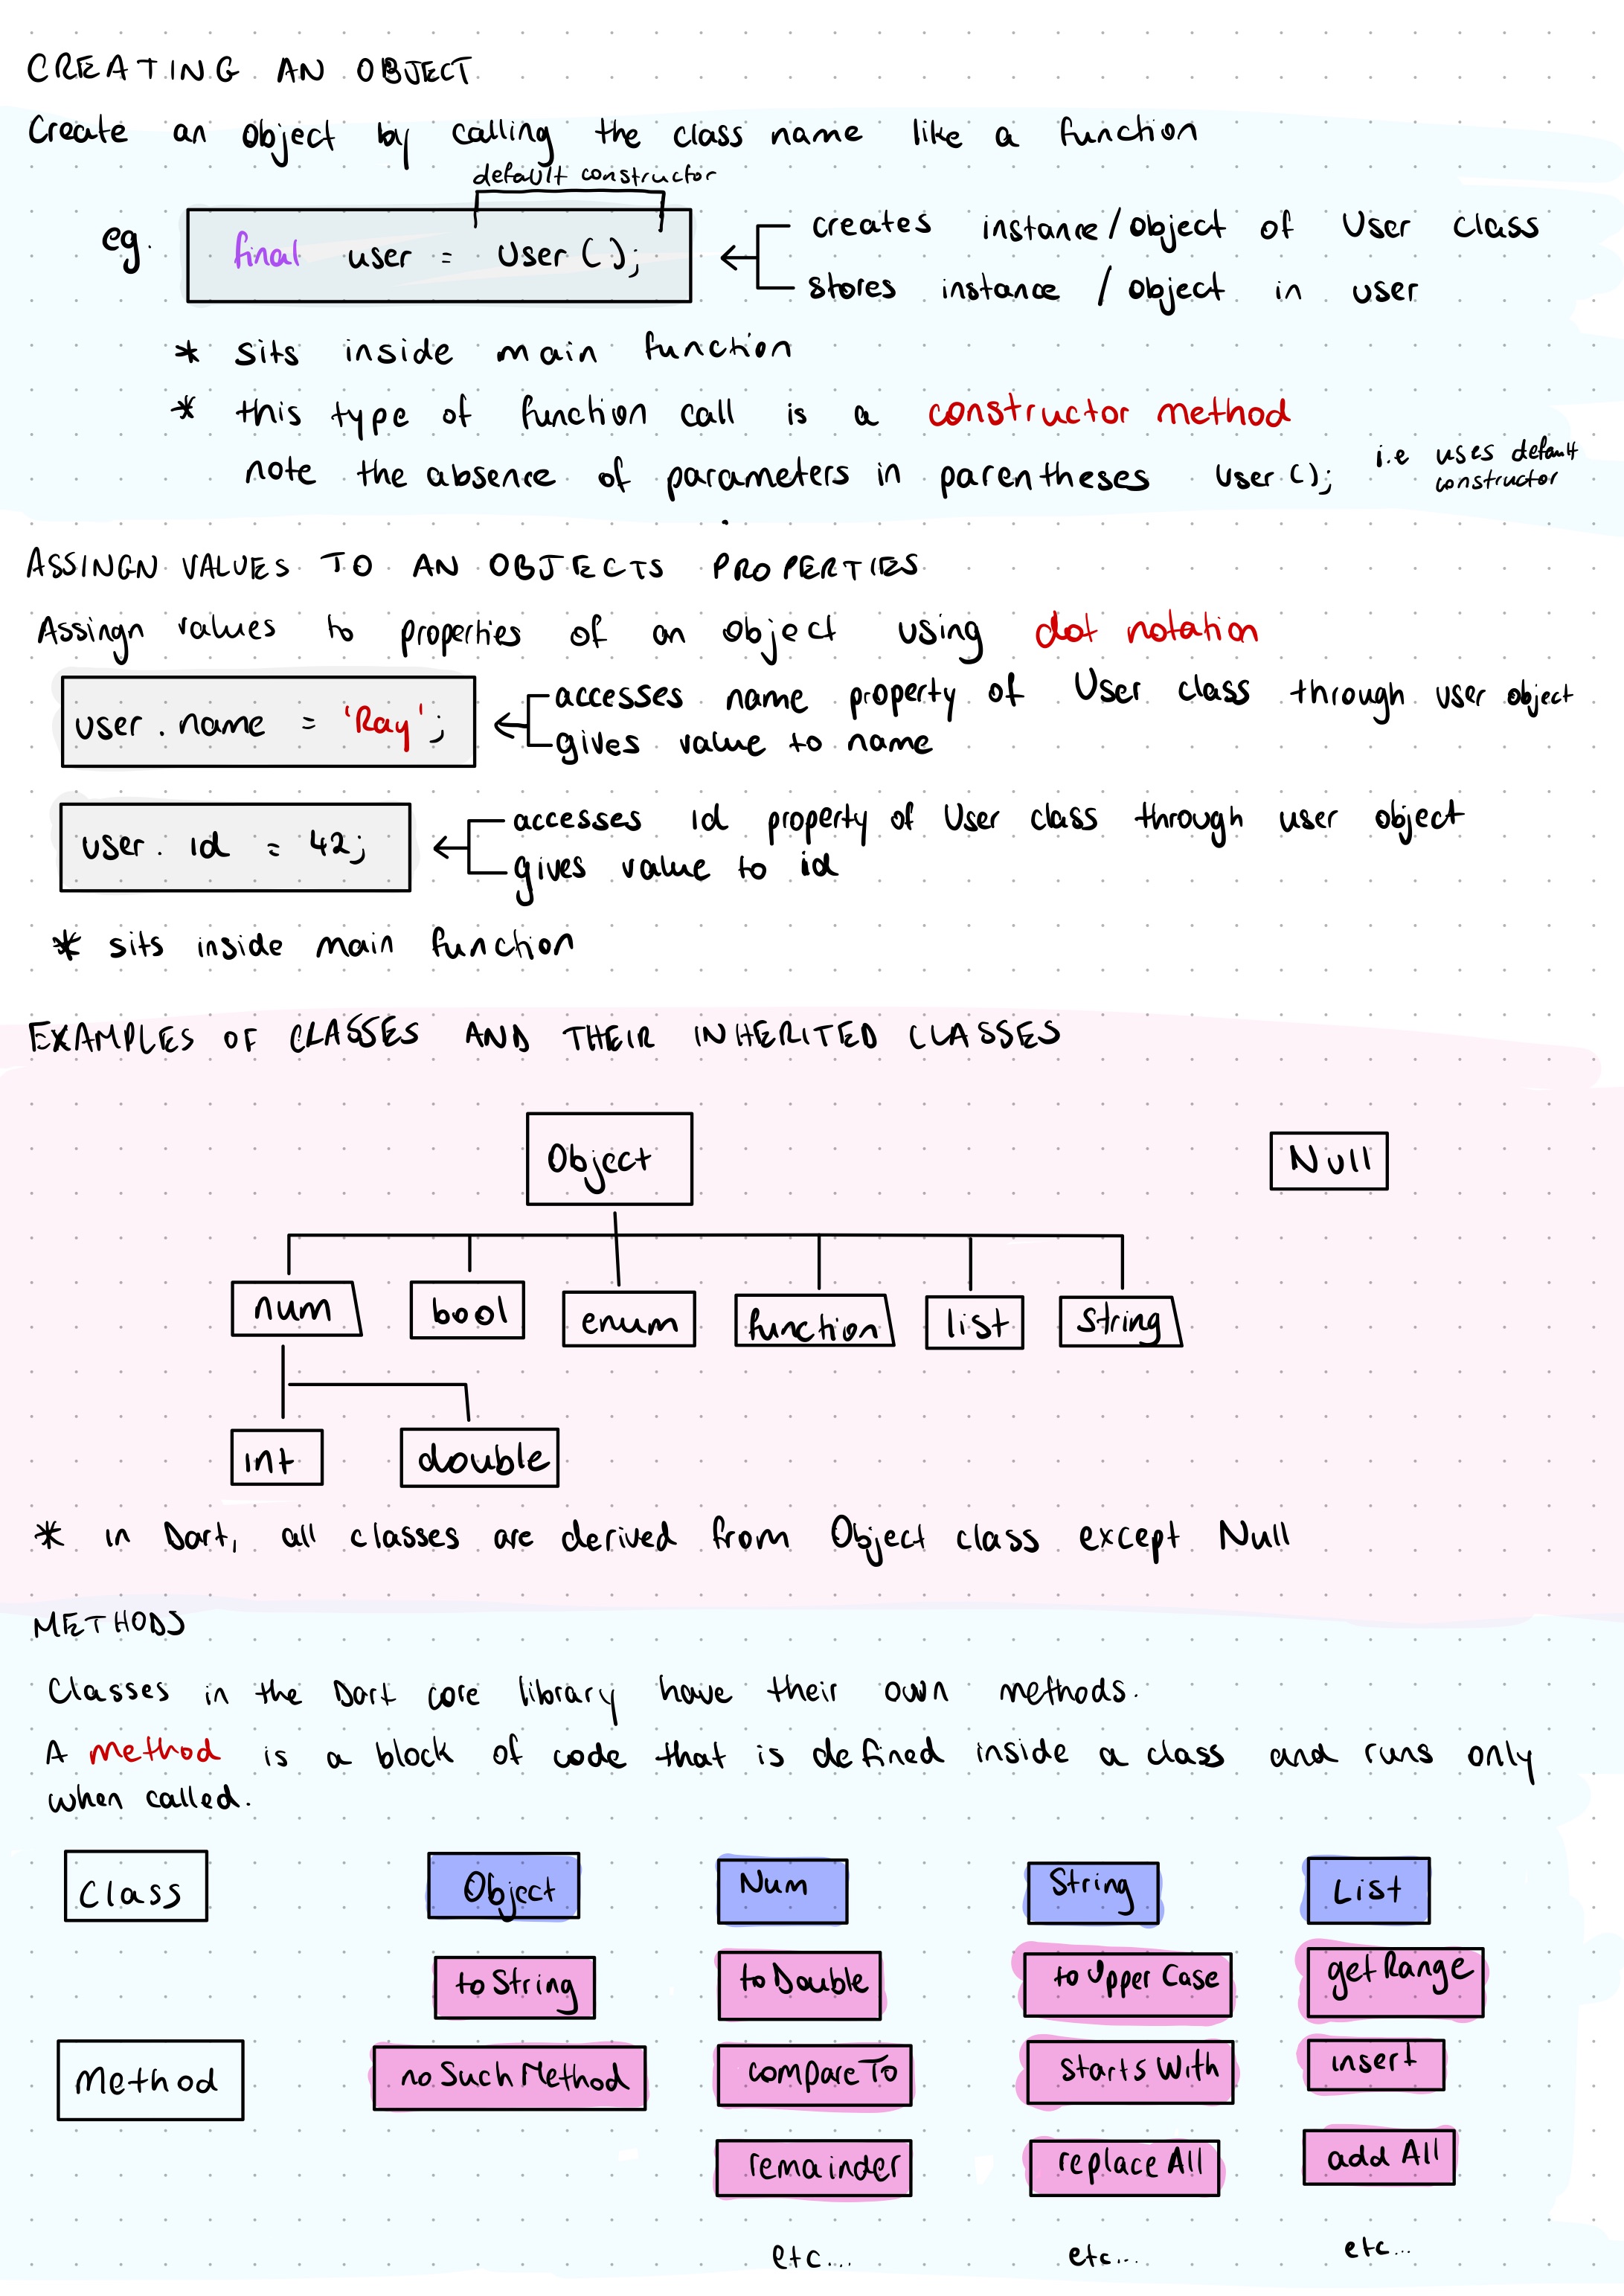 CREATING AN OBJECT
Create an object by calling the class name like a function
default constructor
eg. final user = User();
creates instance/object of User class
stores instance / object in user
* sits inside main function
* this type of function call is a constructor method
note the absence of parameters in parentheses User();
i.e uses default
constructor
ASSINGN VALUES TO AN OBJECTS PROPERTIES
Assingn values to properties of an object using dot notation
user.name = 'Ray';
accesses name property of User class through user object
gives value to name
user.id = 42;
accesses id property of User class through user object
gives value to id
* sits inside main function
EXAMPLES OF CLASSES AND THEIR INHERITED CLASSES
Object Null
num bool enum function list String
int double
* in Dart, all classes are derived from Object class except Null
METHODS
Classes in the Dart core library have their own methods.
A method is a block of code that is defined inside a class and runs only
when called.
Class Object Num String List
toString toDouble toUpperCase getRange
Method noSuchMethod compareTo startsWith insert
remainder replaceAll addAll
etc... etc... etc...